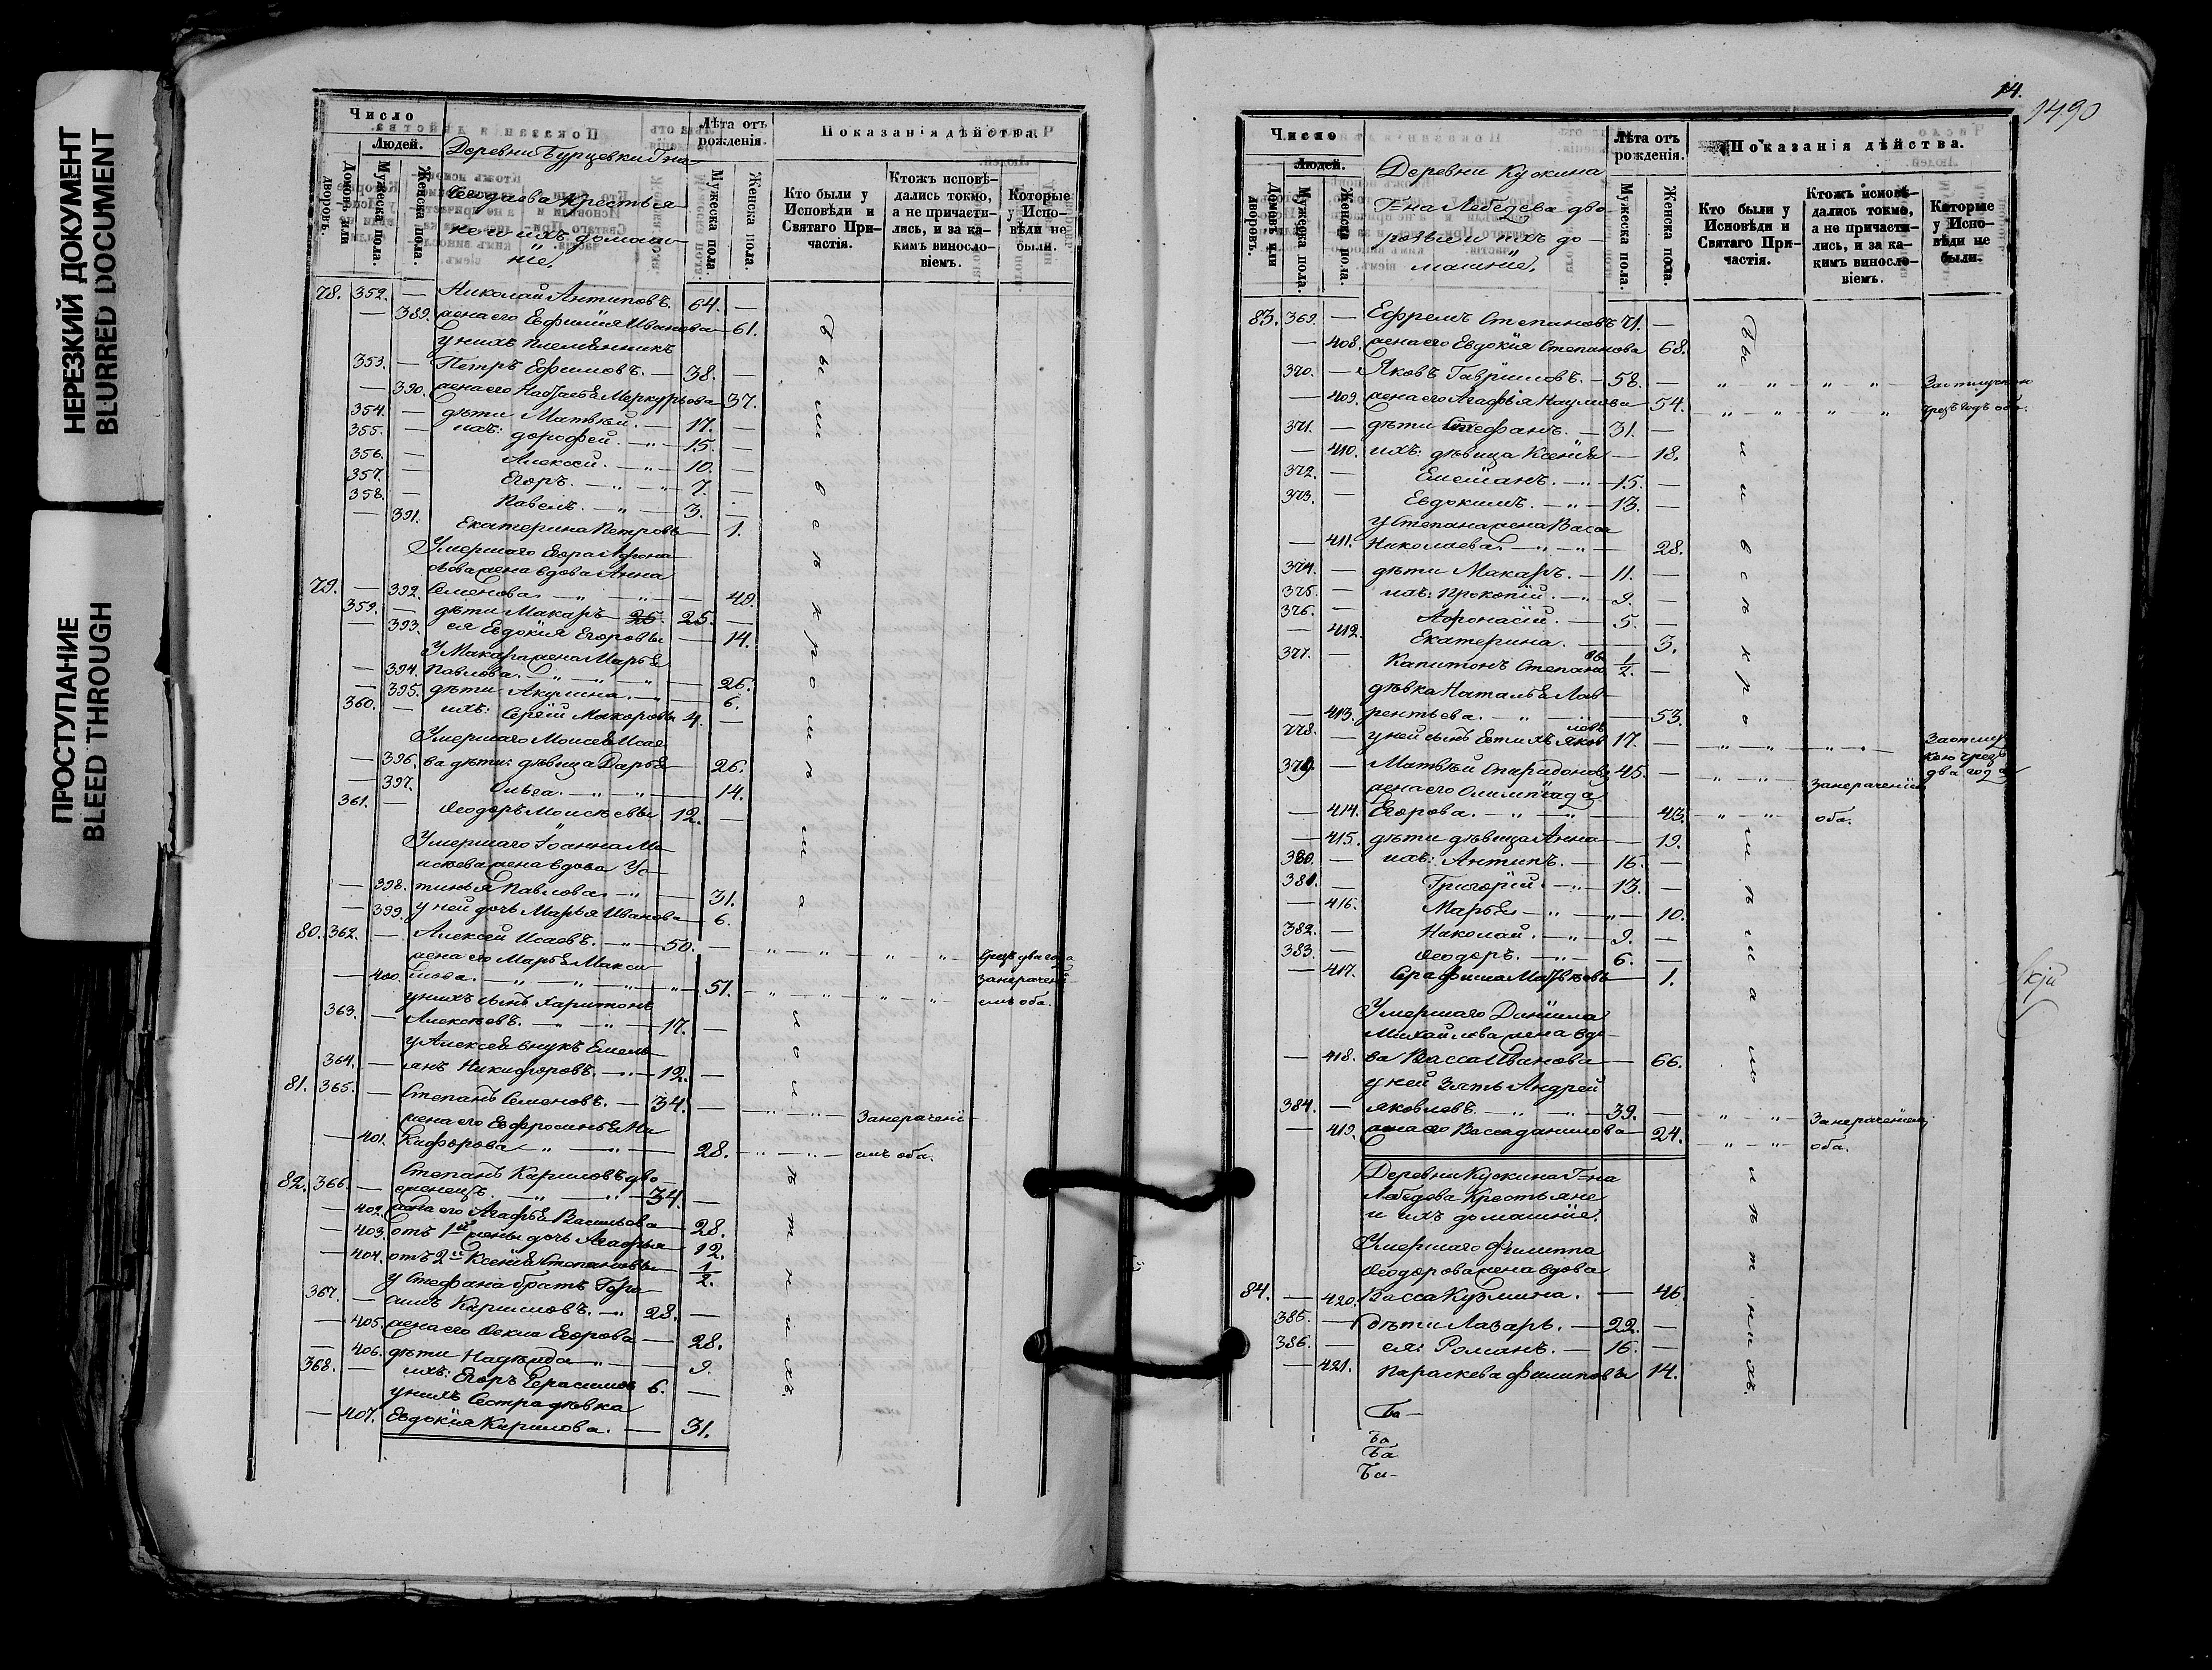 НЕРЕЗКИЙ ДОКУМЕНТ
BLURRED DOCUMENT
ПРОСТУПАНИЕ
BLEED THROUGH
Число
Людей.
Домовъ или дворовъ.
Мужеска пола.
Женска пола.
Деревни Бурцевки Г-на
Крестья
не и ихъ домаш
ніе.
Лѣта отъ рожденія.
Мужеска пола.
Женска пола.
Показанія дѣйства.
Кто были у Исповѣди и Святаго При-
частія.
Ктожъ исповѣ-
дались токмо,
а не причасти-
лись, и за ка-
кимъ виносло-
віемъ.
Которые
у Испо-
вѣди не
были.
78. 352. — Николай Антиповъ. 64. —
— 389. жена его Евфимія Иванова — 61.
у нихъ племянникъ
353. — Петръ Ефимовъ. — 38. —
— 390. жена его Наталья Меркурьева — 37.
354. — дѣти Матвѣй. — 17. —
355. — ихъ: Дорофей. — „ — 15. —
356. — Алексѣй. — „ — 10. —
357. — Егоръ. — „ — „ — 7. —
358. — Павелъ. — „ — 3. —
— 391. Екатерина Петровы — 1.
Умершаго Егора Афона
сьева жена вдова Анна
79. — 392. Семенова. — „ — „ — 49.
359. — дѣти Макаръ 25. —
— 393. ея Евдокія Егоровы — 14.
У Макара жена Марья
— 394. Павлова. — „ — „ — 26.
— 395. дѣти Акулина. — „ — 6.
360. — ихъ: Сергій Макаровы 4. —
Умершаго Моисея Исае
— 396. ва дѣти: дѣвица Дарья — 26.
— 397. Ольга. — „ — „ — 14.
361. — Ѳеодоръ Моисѣевы 12. —
Умершаго Іоанна Мо
исѣева жена вдова Ус—
— 398. тинья Павлова. — „ — 31.
— 399. у ней дочь Марья Иванова — 6.
80. 362. — Алексѣй Исаевъ. — „ — 50. — „ — „ „ „ чрезъ два года
жена его Марья Макси
— 400. мова. — „ — „ — „ — 51. — „ — „ — „ — „ — занераченi
у нихъ сынъ Харитонъ емъ оба.
363. — Алексѣевъ. — „ — „ — 17. —
у Алексѣя внукъ Емель
364. — янъ Никифоровъ. — „ — 12. —
81. 365. — Степанъ Семеновъ. — 34. — „ — „ — Занераченi
жена его Евфросинья Ни
— 401. кифорова — „ — „ — 28. — „ — „ — емъ оба.
82. 366. — Степанъ Кириловъ дво
еженецъ. — „ — „ — 34. —
— 402. жена его Агафья Васильева — 28.
— 403. отъ 1й жены дочь Агафья — 12.
— 404. отъ 2й Ксенія Степановы — 1/2.
у Стефана братъ Гера
367. — симъ Кириловъ. — „ 28. —
— 405. жена его Ѳекла Егорова — 28.
— 406. дѣти Надежда „ — 9.
368. — ихъ: Егоръ Герасимов 6. —
у нихъ Сестра дѣвка
— 407. Евдокія Кирилова. — 31.
были в сѣхромѣма
14.
1490
Число
Людей.
Домовъ или дворовъ.
Мужеска пола.
Женска пола.
Деревни Кускина
Г-на Лебедева дво
ровые и ихъ до
машніе.
Лѣта отъ рожденія.
Мужеска пола.
Женска пола.
Показанія дѣйства.
Кто были у Исповѣди и Святаго При-
частія.
Ктожъ исповѣ-
дались токмо,
а не причасти-
лись, и за ка-
кимъ винosло-
віемъ.
Которые
у Испо-
вѣди не
были.
83. 369. — Ефремъ Степановъ 71. —
— 408. жена его Евдокія Степанова 68.
370. — Яковъ Гавриловъ. — 58. — „ „ — „ „ — За отлучкою
— 409. жена его Агафья Наумова — 54. — „ „ — „ „ чрезъ годъ оба.
371. — дѣти Стефанъ. — 31. —
— 410. ихъ: дѣвица Ксенія — 18.
372. — Емеліанъ. — „ — 15. —
373. — Евдокимъ. — „ — 13. —
у Степана жена Васса
— 411. Николаева. — „ — „ — 28.
374. — дѣти Макаръ. — 11. —
375. — ихъ: Прокопій. — „ — 9. —
376. — Афонасій. — 5. —
— 412. Екатерина. — — 3.
377. — Капитонъ Степановы 1/2. —
дѣвка Наталья Лав—
— 413. рентьева. — „ — „ — 53.
378. — у ней сынъ Евтихъ Яковлевъ 17. — „ — „ — „ „ — За отлуч
кою чрезъ
два года
379. — Матвѣй Спиридоновъ 45. — „ — „ — Занераченіем
жена его Олимпіада
— 414. Егорова. — „ — „ — 43. — „ — „ — оба.
— 415. дѣти дѣвица Анна — 19.
380. — ихъ: Антипъ. — 16. —
381. — Григорій. — „ — 13. —
— 416. Марья — „ — „ — 10.
382. — Николай. — „ — 9. —
383. — Ѳеодоръ. — „ — 6. —
— 417. Серафима Матвѣевы — 1.
Умершаго Даниила
Михайлова жена вдо
— 418. ва Васса Иванова — 66.
у ней зять Андрей
384. — Яковлевъ. — „ — „ — 39. — „ „ — Занераченіем
— 419. жена его Васса Данилова — 24. — „ — „ — оба.
Деревни Кускина Г-на
Лебедева Крестьяне
и ихъ домашніе.
Умершаго Филиппа
Ѳеодорова жена вдова
84. — 420. Васса Кузмина. — 46.
385. — дѣти Лазарь. — 22. —
386. — ея: Романъ. — 16. —
— 421. Параскева Филиповы 14.